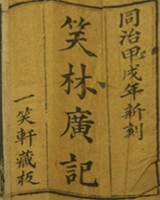 同治甲戌年新刻
笑林廣記
一笑軒藏板